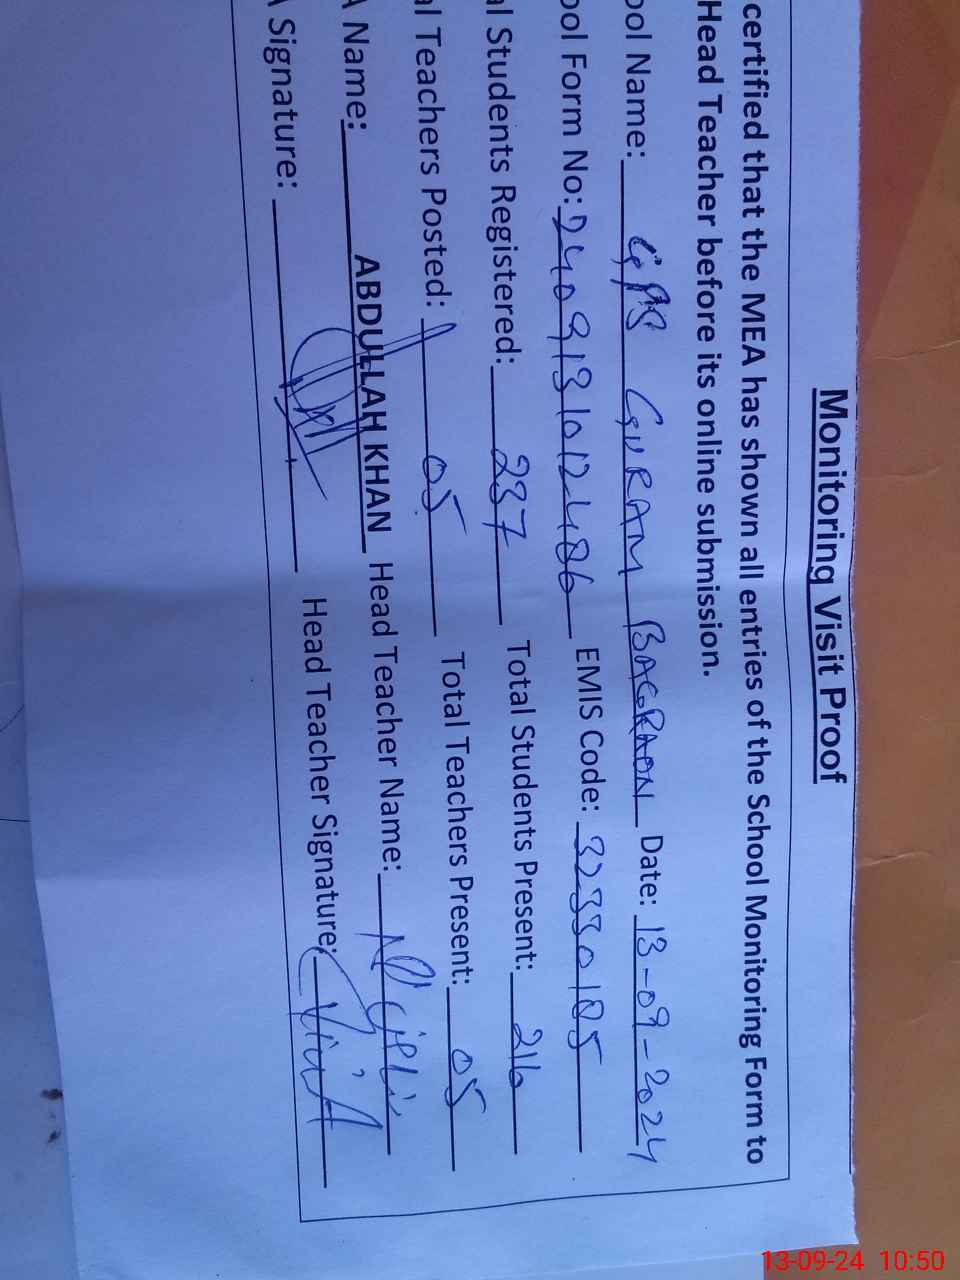 Monitoring Visit Proof
certified that the MEA has shown all entries of the School Monitoring Form to
Head Teacher before its online submission.
ool Name: GPS GURAM BAGRAON Date: 13-09-2024
ool Form No: 2409131012486 EMIS Code: 32330185
al Students Registered: 237 Total Students Present: 216
al Teachers Posted: 05 Total Teachers Present: 05
A Name: ABDULLAH KHAN Head Teacher Name:
A Signature: Head Teacher Signature:
13-09-24 10:50